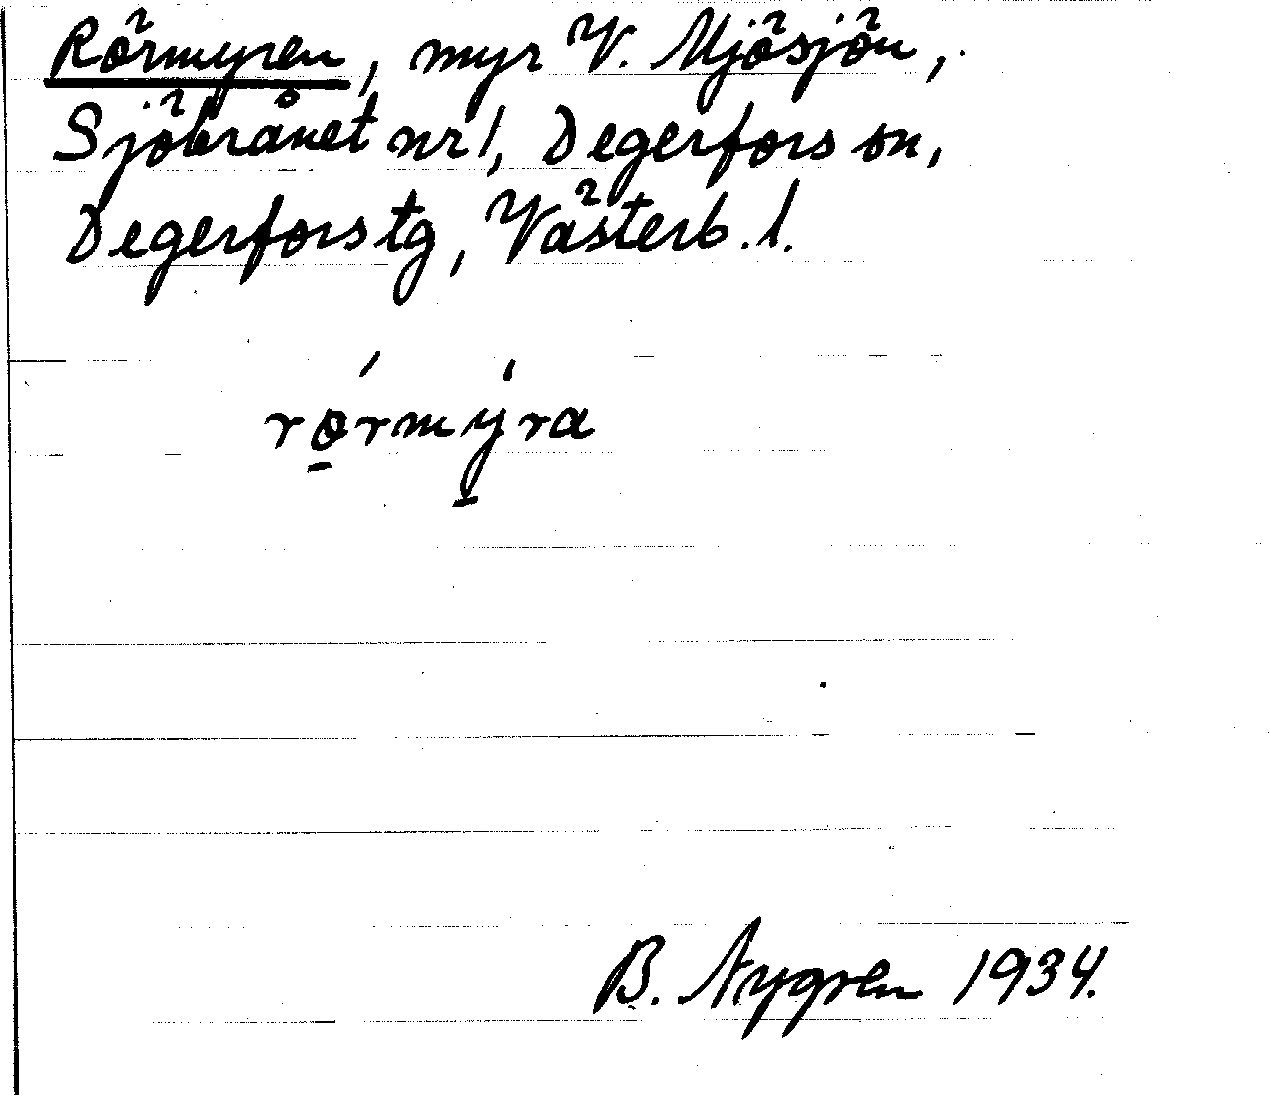 Rörmyren, myr V. Mjösjön,
Sjöbrånet nr 1, Degerfors sn,
Degerfors tg, Västerb. l.
rǿ̠rmý̠ra
B. Nygren 1934.